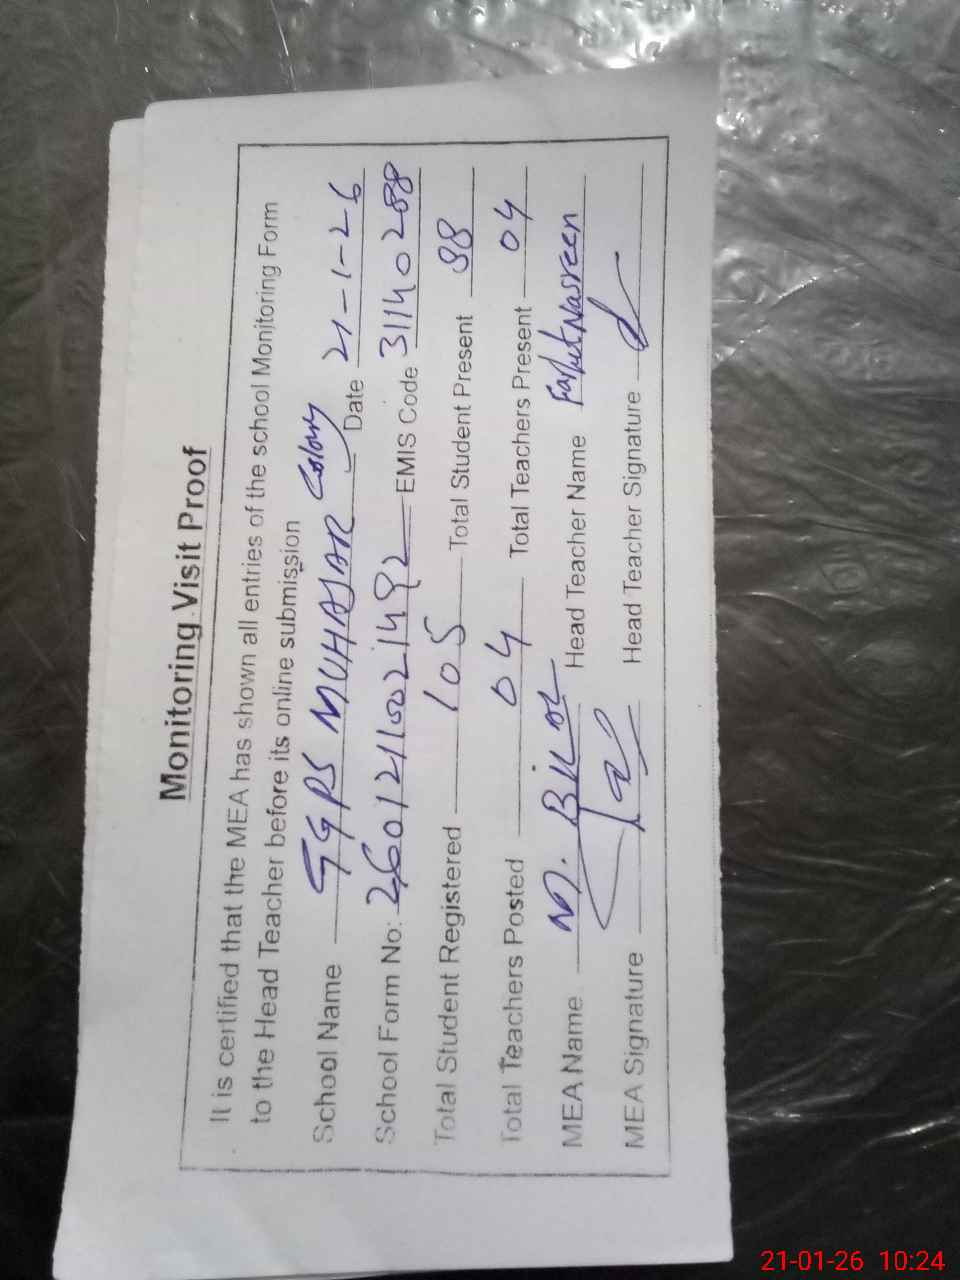 Monitoring Visit Proof
It is certified that the MEA has shown all entries of the school Monitoring Form
to the Head Teacher before its online submission
School Name GGPS MUHAJAR Colony Date 21-1-26
School Form No: 26012110021492 EMIS Code 31140288
Total Student Registered 105 Total Student Present 98
Total Teachers Posted 04 Total Teachers Present 04
MEA Name M. BILAL Head Teacher Name Nasreen
MEA Signature Head Teacher Signature
21-01-26 10:24